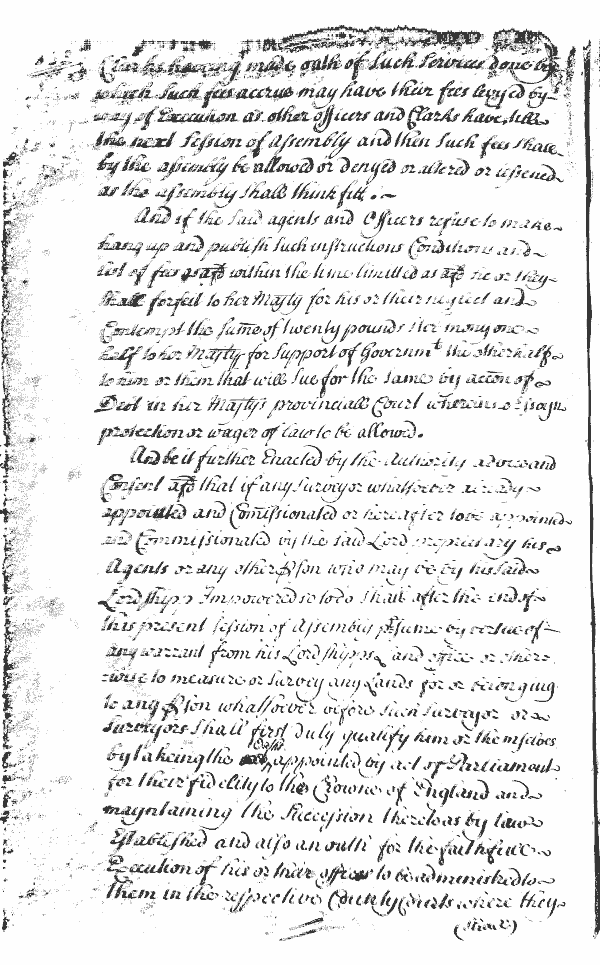 Clarks haveing made oath of Such Services done by
which Such fees accrue may have their fees levyed by
way of Execution as other officers and Clarks have, till
the next Session of Assembly and then Such fees shall
by the assembly be allowed or denyed or altered or lessened
as the assembly Shall think fitt.
And if the Said agents and Officers refuse to make
hang up and publish Such instructions Conditions and
list of fees as afsd within the time limitted as afsd he or they
Shall forfeit to her Majty for his or their neglect and
Contempt the Sume of twenty pounds Ster mony one
half to her Majty for Support of Governmt the other half
to him or them that will Sue for the Same by accon of
Debt in her Majtys provinciall Court wherein no Essoyn
protection or wager of law to be allowed.
And be it further Enacted by the Authority advice and
Consent afsd that if any Surveyor whatsoever already
appointed and Comissionated or hereafter to be appointed
and Commissionated by the Said Lord proprietary his
Agents or any other Pson who may be by his Said
Lordshipp Impowered so to do Shall after the end of
this present Session of Assembly psume by vertue of
any warrant from his Lordshipps Land office or other
wise to measure or Survey any Lands for or belonging
to any Pson whatsoever before Such Surveyor or
Surveyors Shall first duly qualify him or themselves
by takeing the Oaths appointed by act of Parliament
for their fidelity to the Crowne of England and
mayntaining the Succession thereto as by law
Established and also an oath for the faithfull
Execution of his or their offices to be administred to
them in the respective County Courts where they
(Shall)